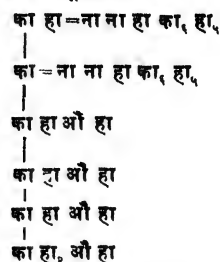 का हा=ना ना हा का₍६₎ हा₍५₎
का=ना ना हा का₍६₎ हा₍५₎
का हा औ हा
का हा औ हा
का हा औ हा
का हा₍२₎ औ हा